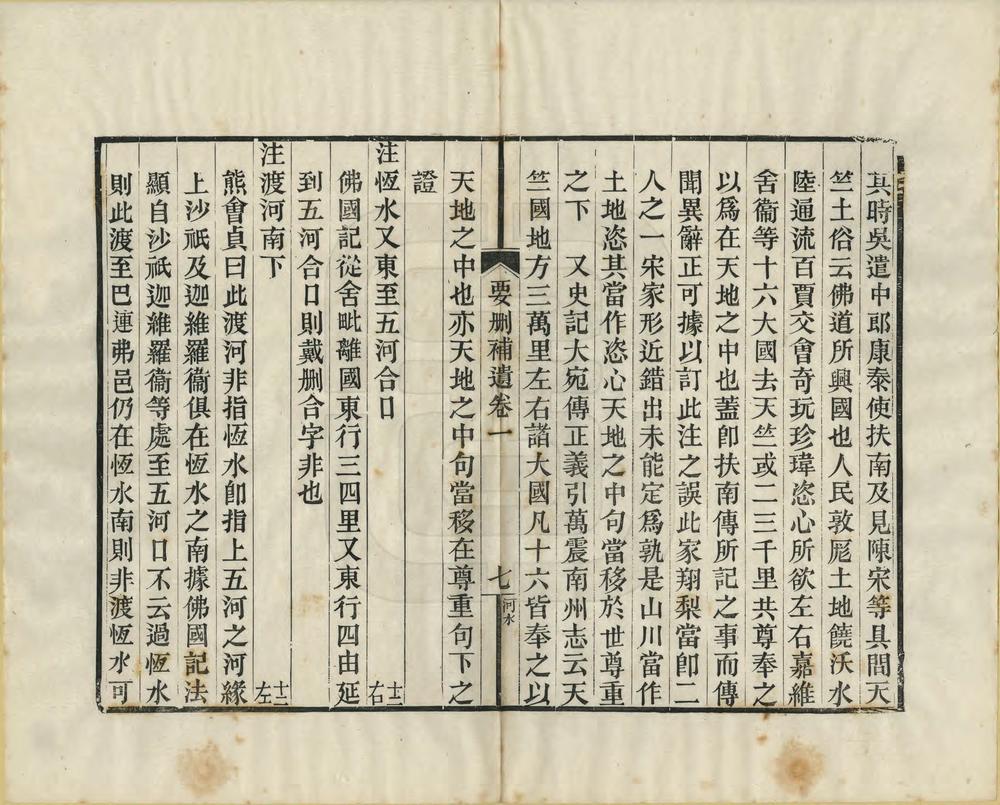 其時吳遣中郎康泰使扶南及見陳宋等具問天
竺土俗云佛道所興國也人民敦厖土地饒沃水
陸通流百賈交會奇玩珍瑋恣心所欲左右嘉維
舍衞等十六大國去天竺或二三千里共尊奉之
以爲在天地之中也蓋卽扶南傳所記之事而傳
聞異辭正可據以訂此注之誤此家翔梨當卽二
人之一宋家形近錯出未能定爲孰是山川當作
土地恣其當作恣心天地之中句當移於世尊重
之下　又史記大宛傳正義引萬震南州志云天
竺國地方三萬里左右諸大國凡十六皆奉之以
要刪補遺卷一　七　河水
天地之中也亦天地之中句當移在尊重句下之
證
注恆水又東至五河合口　十二右
佛國記從舍毗離國東行三四里又東行四由延
到五河合口則戴刪合字非也
注渡河南下　十二左
熊會貞曰此渡河非指恆水卽指上五河之河緣
上沙祇及迦維羅衞俱在恆水之南據佛國記法
顯自沙祇迦維羅衞等處至五河口不云過恆水
則此渡至巴連弗邑仍在恆水南則非渡恆水可